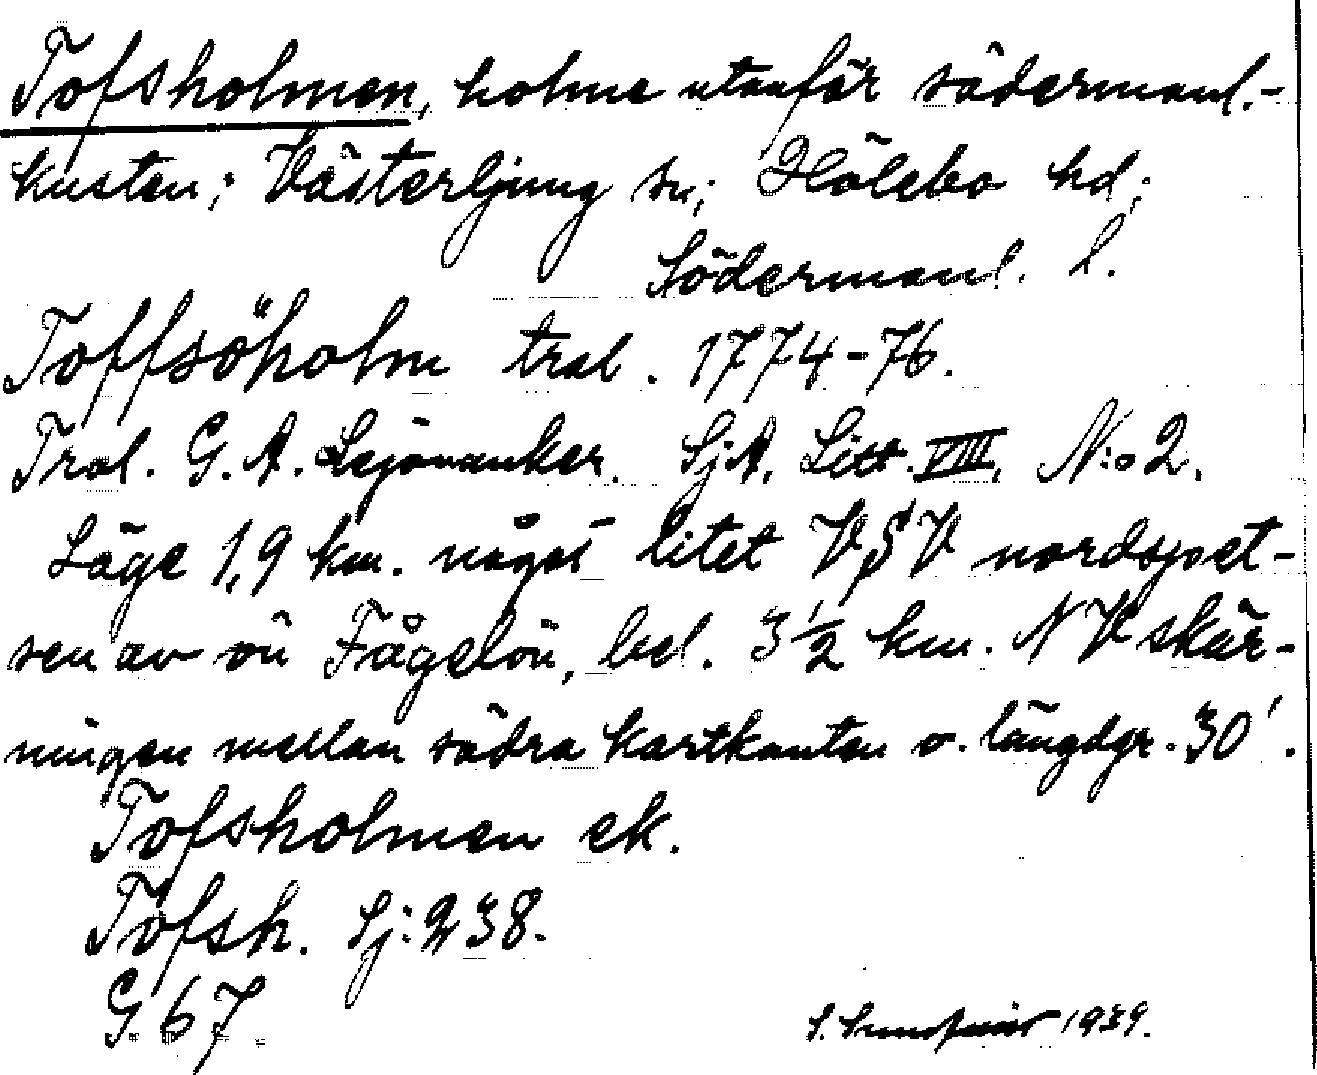 Tofsholmen, holme utanför södermanl.-
kusten; Västerljung sn; Hölebo hd;
Södermanl. l.
Toffsöholm tral. 1774-76.
Tral. G. A. Lejonanker. SjA. Litt. VIII, N:o 2.
Läge 1,9 km. något litet VSV nordspet-
sen av ön Fågelön, bel. 3 1/2 km. NV skär-
ningen mellan södra kartkanten o. längdgr. 30'.
Tofsholmen ek.
Tofsh. Sj: 238.
G. 67.
S. 1939.